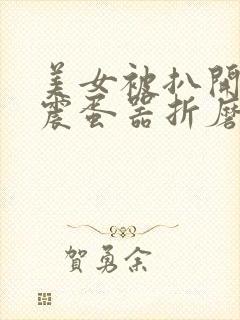 美女被扒開
震蛋器折磨
賀勇余